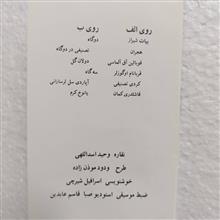 روی الف
بیات شیراز
هجران
قوبالین آق الماسی
قربانام اوگوزلر
کردی تصنیفی
قاشقلدری کمان
روی ب
دوگاه
تصنیفی در دوگاه
دولان گل
سه گاه
آپاردی سل لر سارانی
یانیق کرم
نقاره وحید اسداللهی
طرح ودود موذن زاده
خوشنویسی اسرافیل شیرچی
ضبط موسیقی استودیو صبا قاسم عابدین